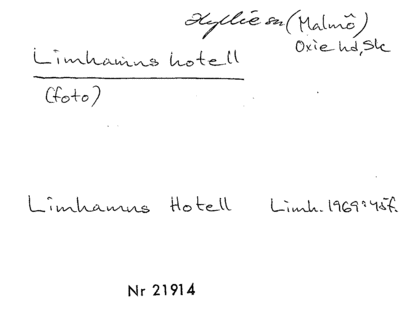 Hyllie sn (Malmö)
Oxie hd, Sk
Limhamns hotell
(foto)
Limhamns Hotell Limh. 1969:45f.
Nr 21914